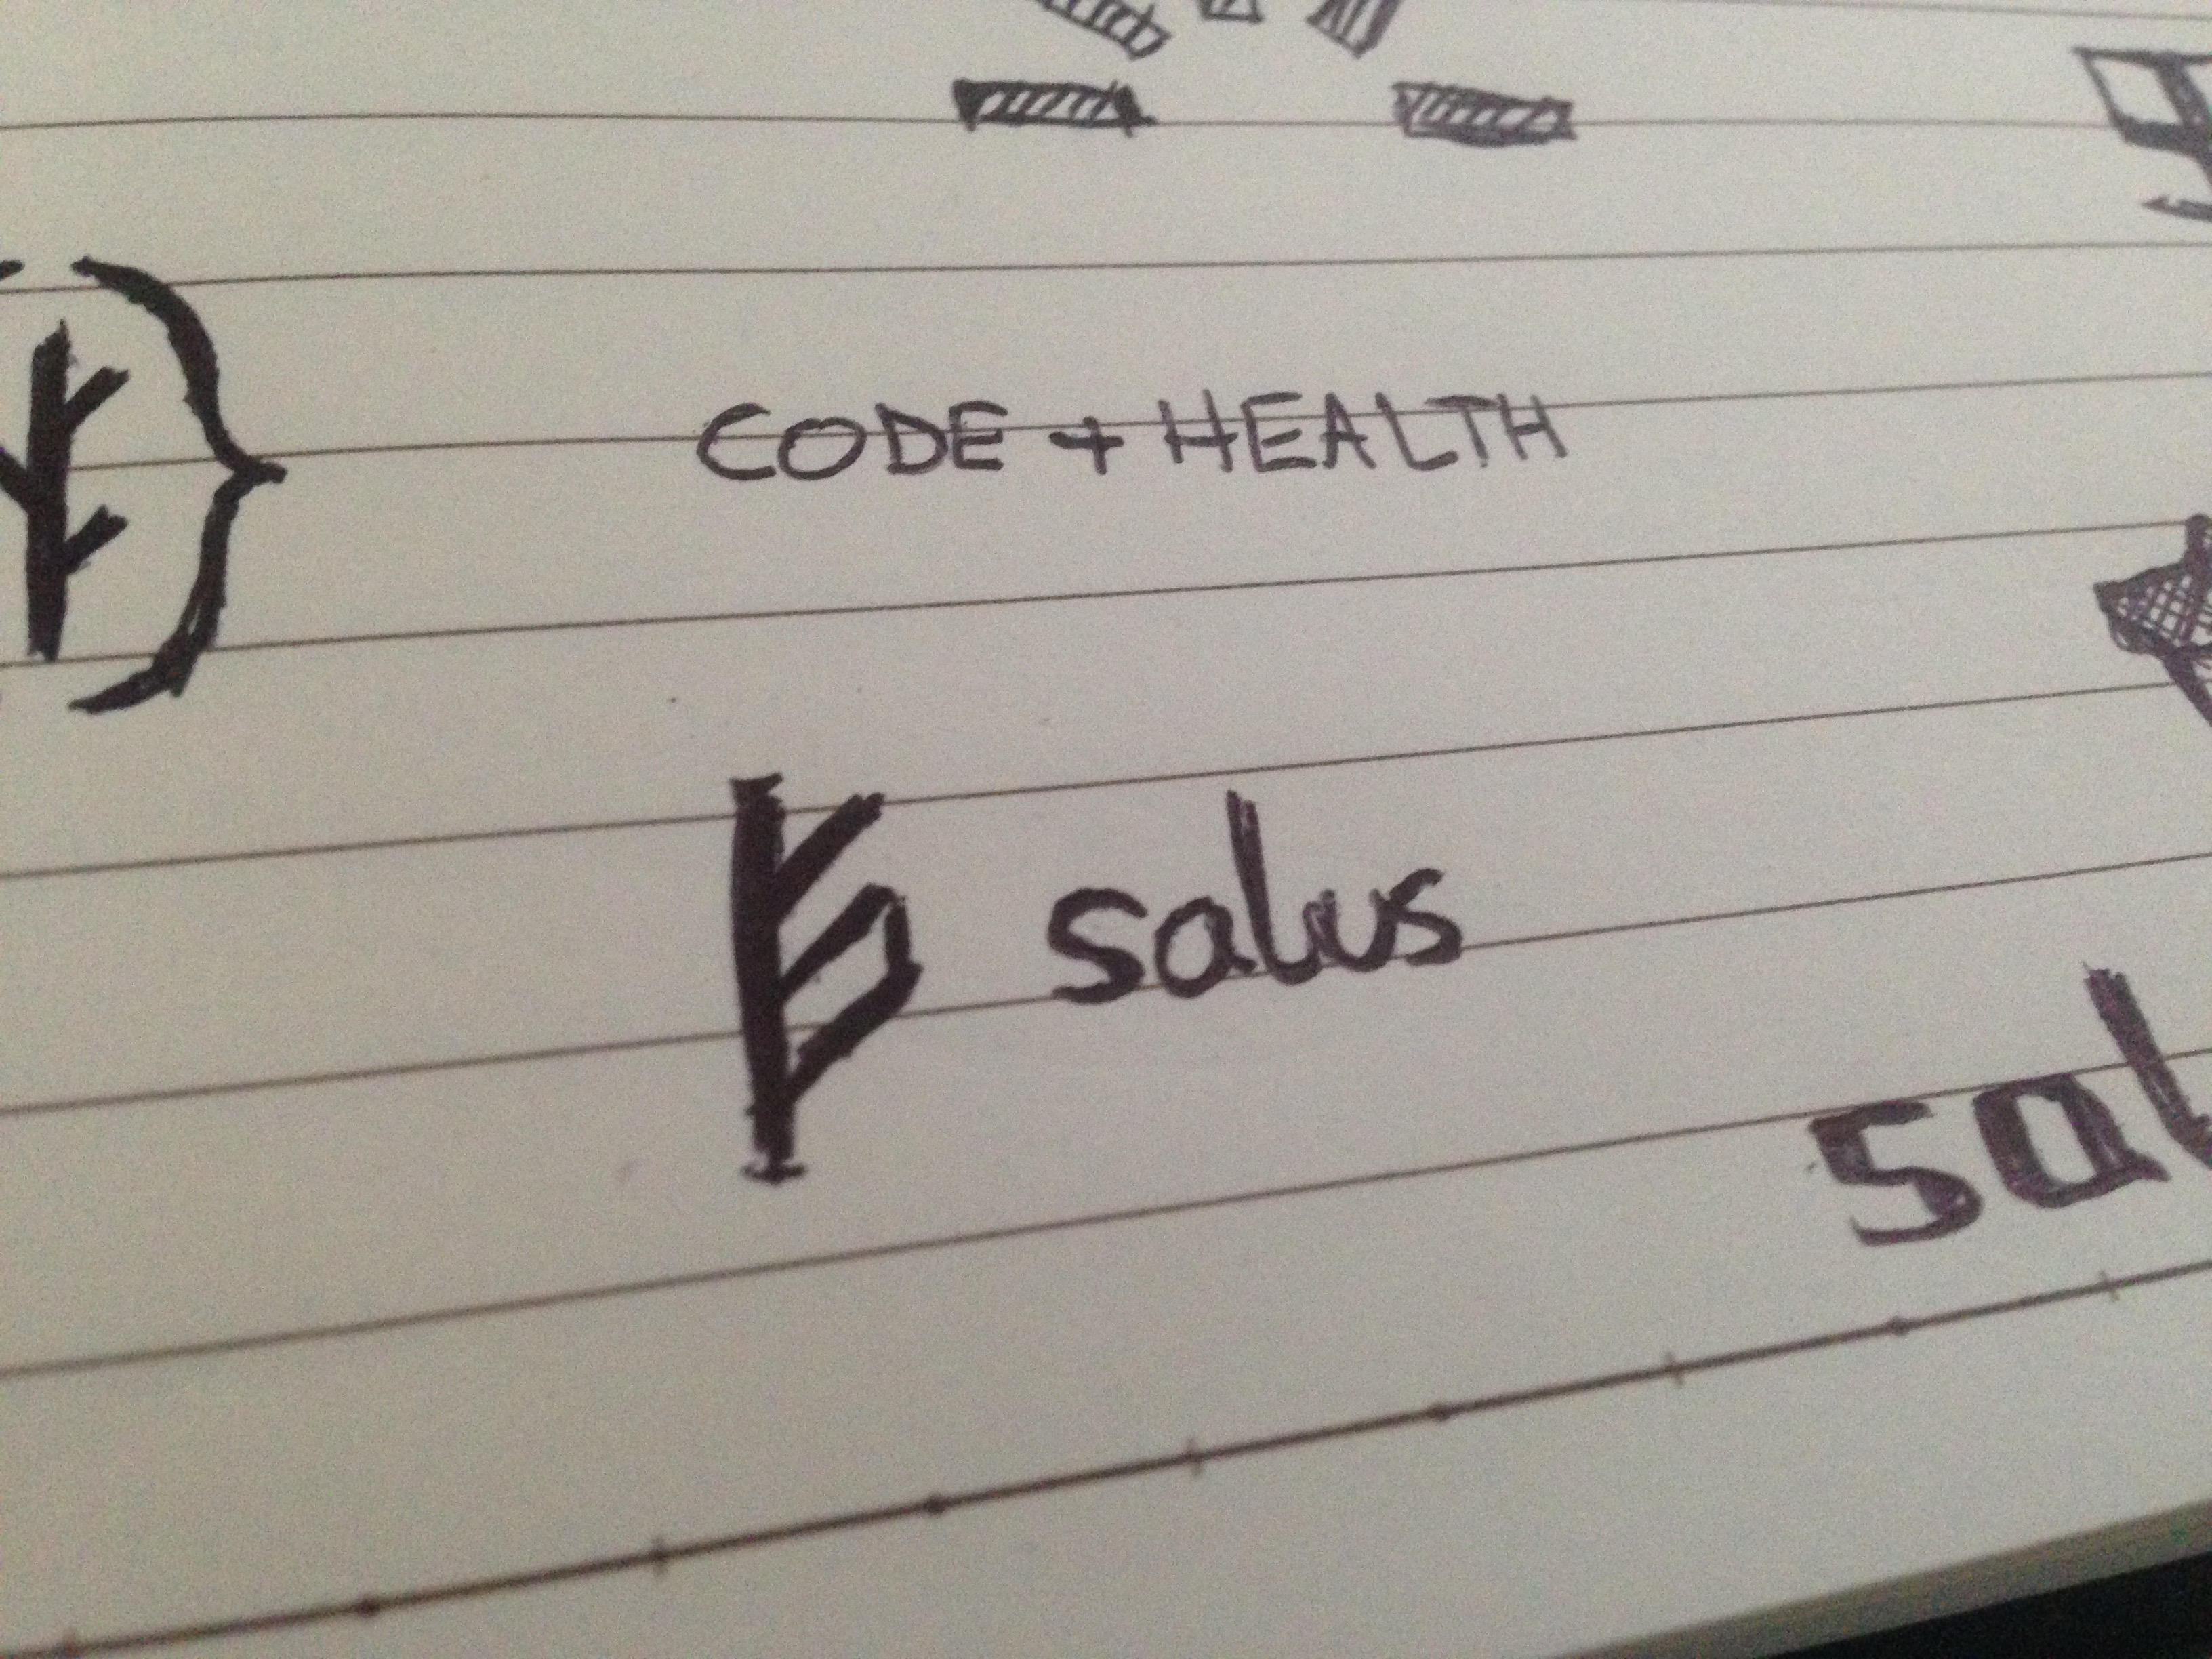 CODE + HEALTH
salus
sal